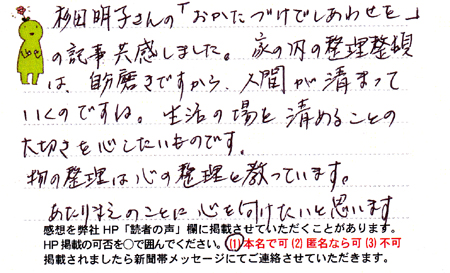 杉田明子さんの「おかたづけでしあわせを」
の記事共感しました。家の内の整理整頓
は、自分磨きですから、人間が清まって
いくのですね。生活の場を清めることの
大切さを心したいものです。
物の整理は心の整理と教っています。
あたりまえのことに心を向けたいと思います
感想を弊社HP「読者の声」欄に掲載させていただくことがあります。
HP掲載の可否を○で囲んでください。(1)本名で可 (2)匿名なら可 (3)不可
掲載されましたら新聞帯メッセージにてご連絡させていただきます。